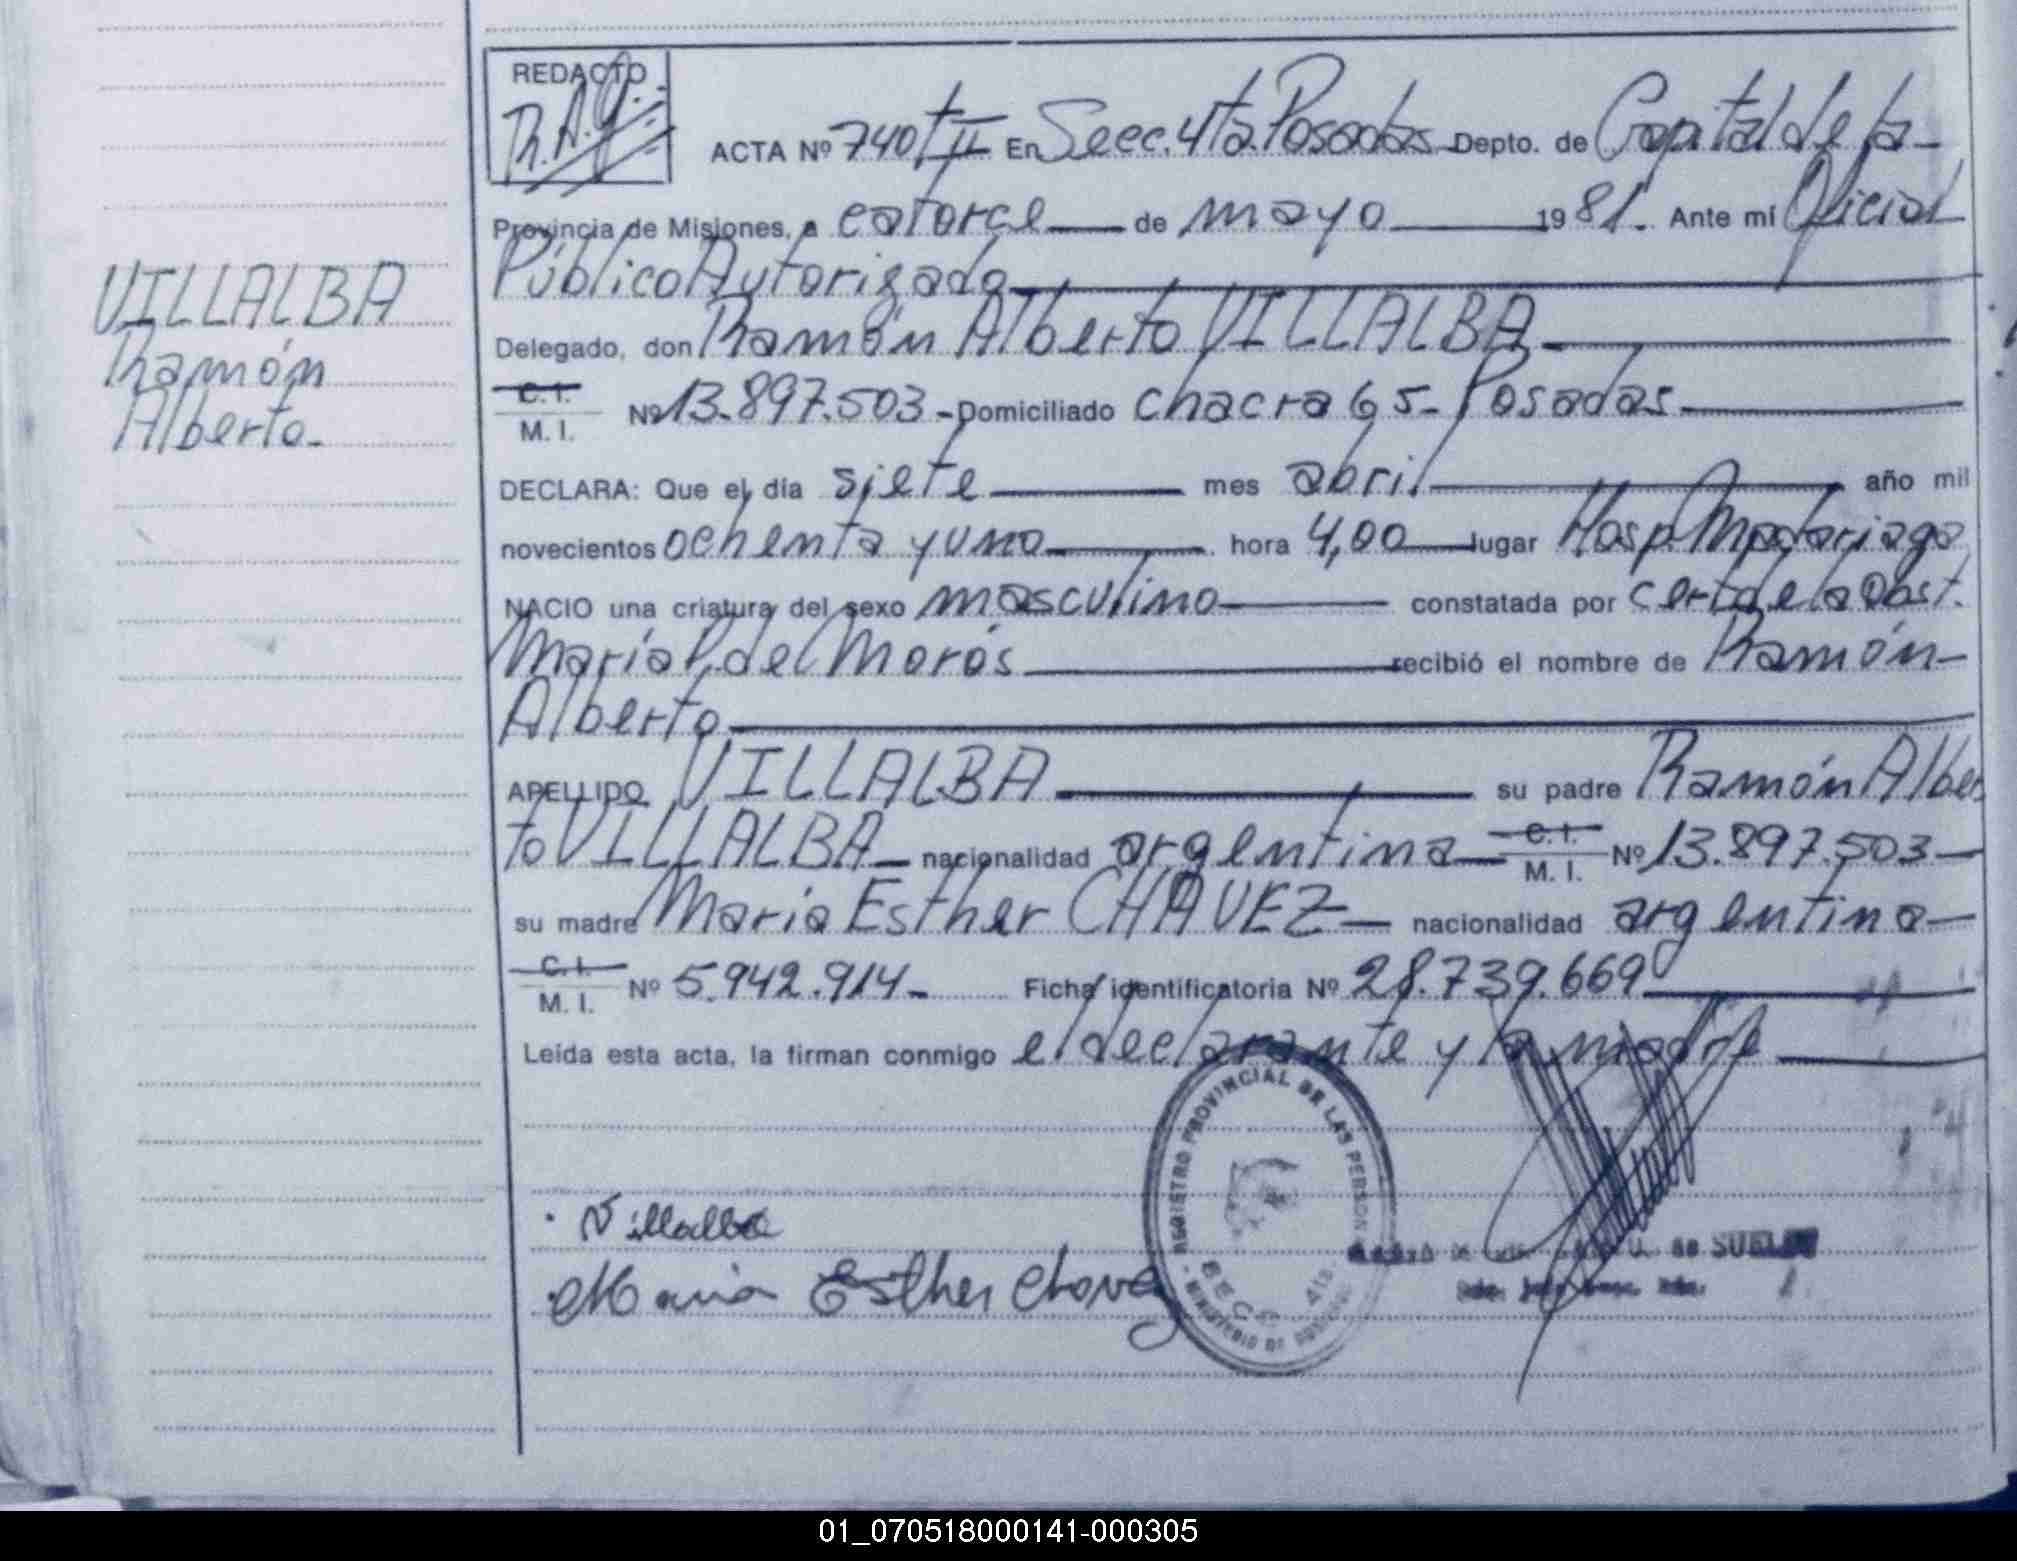 REDACTO
R.A.J.
ACTA Nº 740 t II En Secc. 4ta. Posadas Depto. de Capital de la
Provincia de Misiones, a catorce de mayo 1981. Ante mí Oficial
Público Autorizado
Delegado, don Ramón Alberto VILLALBA
C. I.
M. I.
Nº 13.897.503 - Domiciliado chacra 65 - Posadas
DECLARA: Que el día siete mes abril año mil
novecientos ochenta y uno hora 4,00 lugar Hosp. Madariaga
NACIO una criatura del sexo masculino constatada por cert de la Obst.
María P. de Morós recibió el nombre de Ramón
Alberto
APELLIDO VILLALBA su padre Ramón Alber
to VILLALBA nacionalidad argentina C. I. M. I. Nº 13.897.503
su madre María Esther CHAVEZ nacionalidad argentina
C. I.
M. I.
Nº 5.942.914 - Ficha identificatoria Nº 28.739.669
Leída esta acta, la firman conmigo el declarante y la madre
VILLALBA
Ramón
Alberto
Villalba
Maria Esther Chavez
REGISTRO PROVINCIAL DE LAS PERSONAS
SECC. 4ta.
MINISTERIO DE GOBIERNO
de SUELDO
01_070518000141-000305